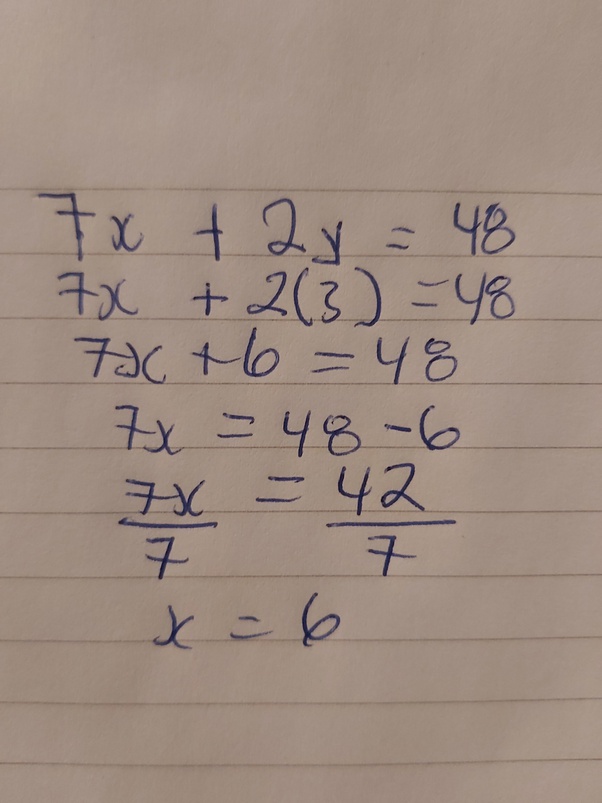 7x + 2y = 48
7x + 2(3) = 48
7x + 6 = 48
7x = 48 - 6
7x/7 = 42/7
x = 6